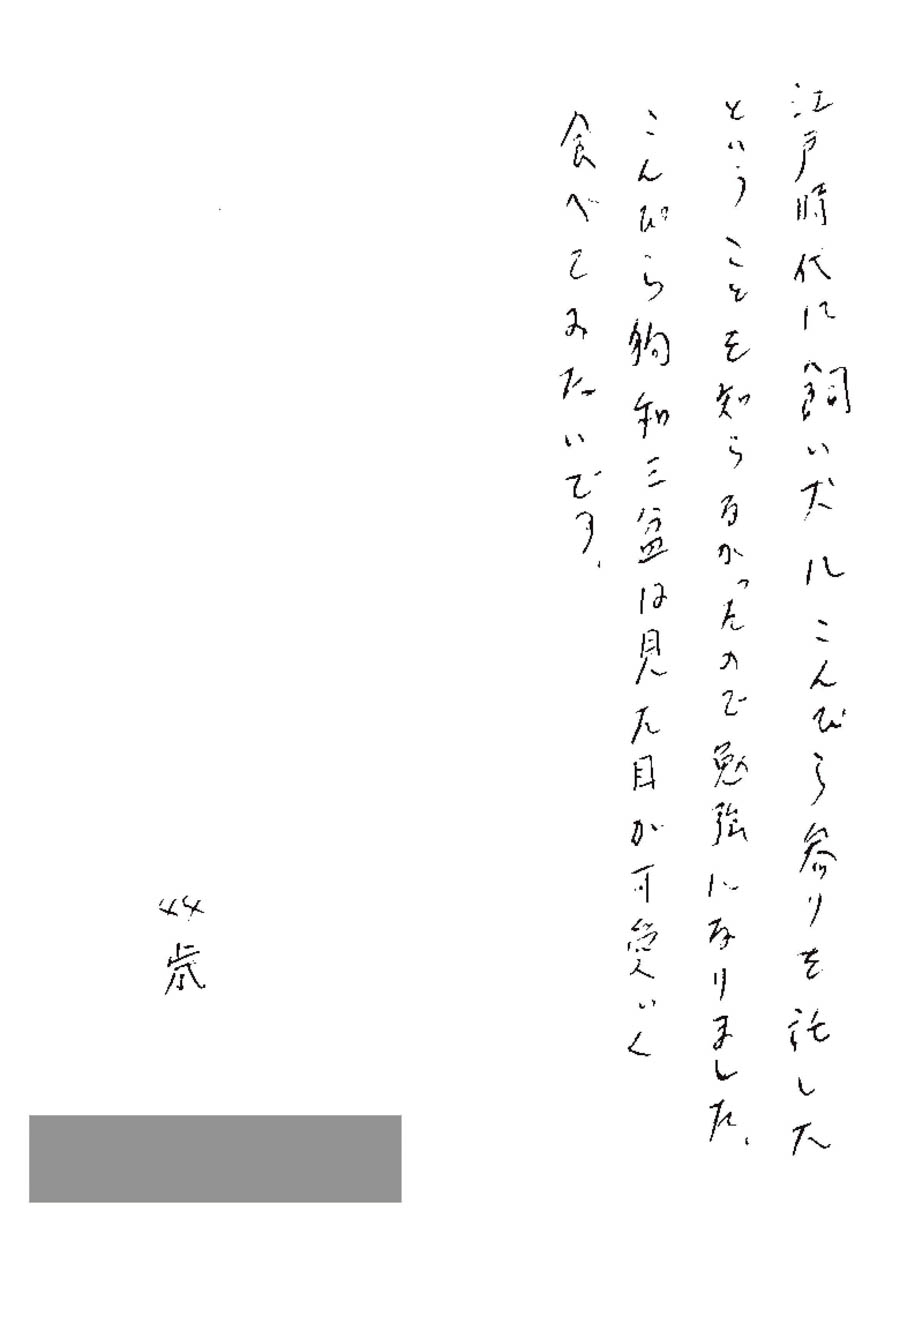 江戸時代に飼い犬にこんぴら参りを託した
ということを知らなかったので勉強になりました。
こんぴら狗和三盆は見た目が可愛いく
食べてみたいです。
44歳